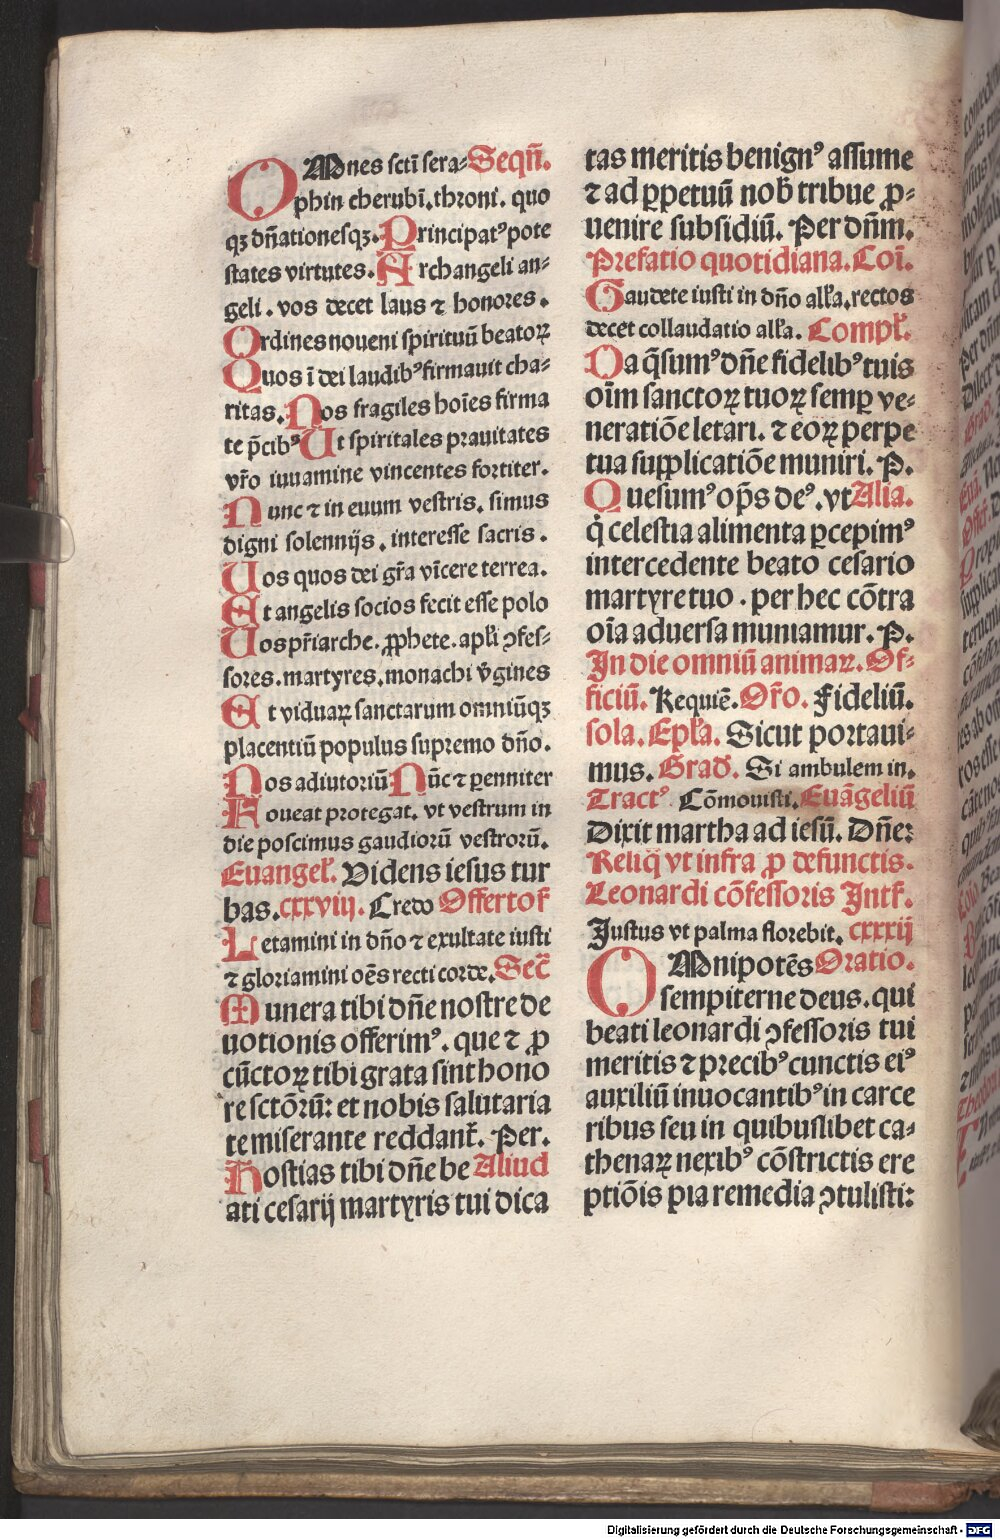 OMnes sctī sera⸗ Seqñ.
phin cherubī.throni. quo
qꝫ dn̄ationesqꝫ. Principatꝰ pote
states virtutes. Archangeli an⸗
geli. vos decet laus ⁊ honores.
Ordines noueni spirituū beatoꝝ
Quos ī dei laudibꝰ firmauit cha⸗
ritas. Nos fragiles hoīes firma
te p̄cibꝰ Ut spiritales prauitates
vr̄o iuuamine vincentes fortiter.
Nunc ⁊ in euum vestris. simus
digni solennijs. interesse sacris.
Uos quos dei gr̄a vīcere terrea.
Et angelis socios fecit esse polo
Uos pr̄iarche. ꝓphete. apl̄i ꝯfes⸗
sores. martyres. monachi v̄gines
Et viduaꝝ sanctarum omniūqꝫ
placentiū populus supremo dn̄o.
Nos adiutoriū Nūc ⁊ ꝑenniter
Foueat protegat. vt vestrum in
die poscimus gaudiorū vestrorū.
Euangeł. Videns iesus tur
bas. cxxviij. Credo Offertoř
Letamini in dn̄o ⁊ exultate iusti
⁊ gloriamini oēs recti corde. Sec̄
Munera tibi dn̄e nostre de
uotionis offerimꝰ. que ⁊ ꝓ
cūctoꝝ tibi grata sint hono
re sctōrū: et nobis salutaria
te miserante reddant̄. Per.
Hostias tibi dn̄e be Aliud
ati cesarij martyris tui dica
tas meritis benignꝰ assume
⁊ ad ꝑpetuū nob̄ tribue ꝓ⸗
uenire subsidiū. Per dn̄m.
Prefatio quotidiana. Coī.
Gaudete iusti in dn̄o alła. rectos
decet collaudatio alła. Compł.
Da q̄sumꝰ dn̄e fidelibꝰ tuis
oīm sanctoꝝ tuoꝝ semꝑ ve⸗
neratiōe letari. ⁊ eoꝝ perpe
tua supplicatiōe muniri. P.
Quesumꝰ op̄s deꝰ. vt Alia.
q̄ celestia alimenta ꝑcepimꝰ
intercedente beato cesario
martyre tuo. per hec cōtra
oīa aduersa muniamur. P.
In die omniū animaꝝ. Of⸗
ficiū. Requiē. Or̄o. Fideliū.
sola. Epła. Sicut portaui⸗
mus. Grad. Si ambulem in.
Tractꝰ Cōmouisti. Euāgeliū
Dixit martha ad iesū. Dn̄e:
Reliq̄ vt infra ꝓ defunctis.
Leonardi cōfessoris Intř.
Justus vt palma florebit. cxxxij
OMnipotēs Oratio.
sempiterne deus. qui
beati leonardi ꝯfessoris tui
meritis ⁊ precibꝰ cunctis eiꝰ
auxiliū inuocantibꝰ in carce
ribus seu in quibuslibet ca⸗
thenaꝝ nexibꝰ cōstrictis ere
ptiōis pia remedia ꝯtulisti:
Digitalisierung gefördert durch die Deutsche Forschungsgemeinschaft - DFG